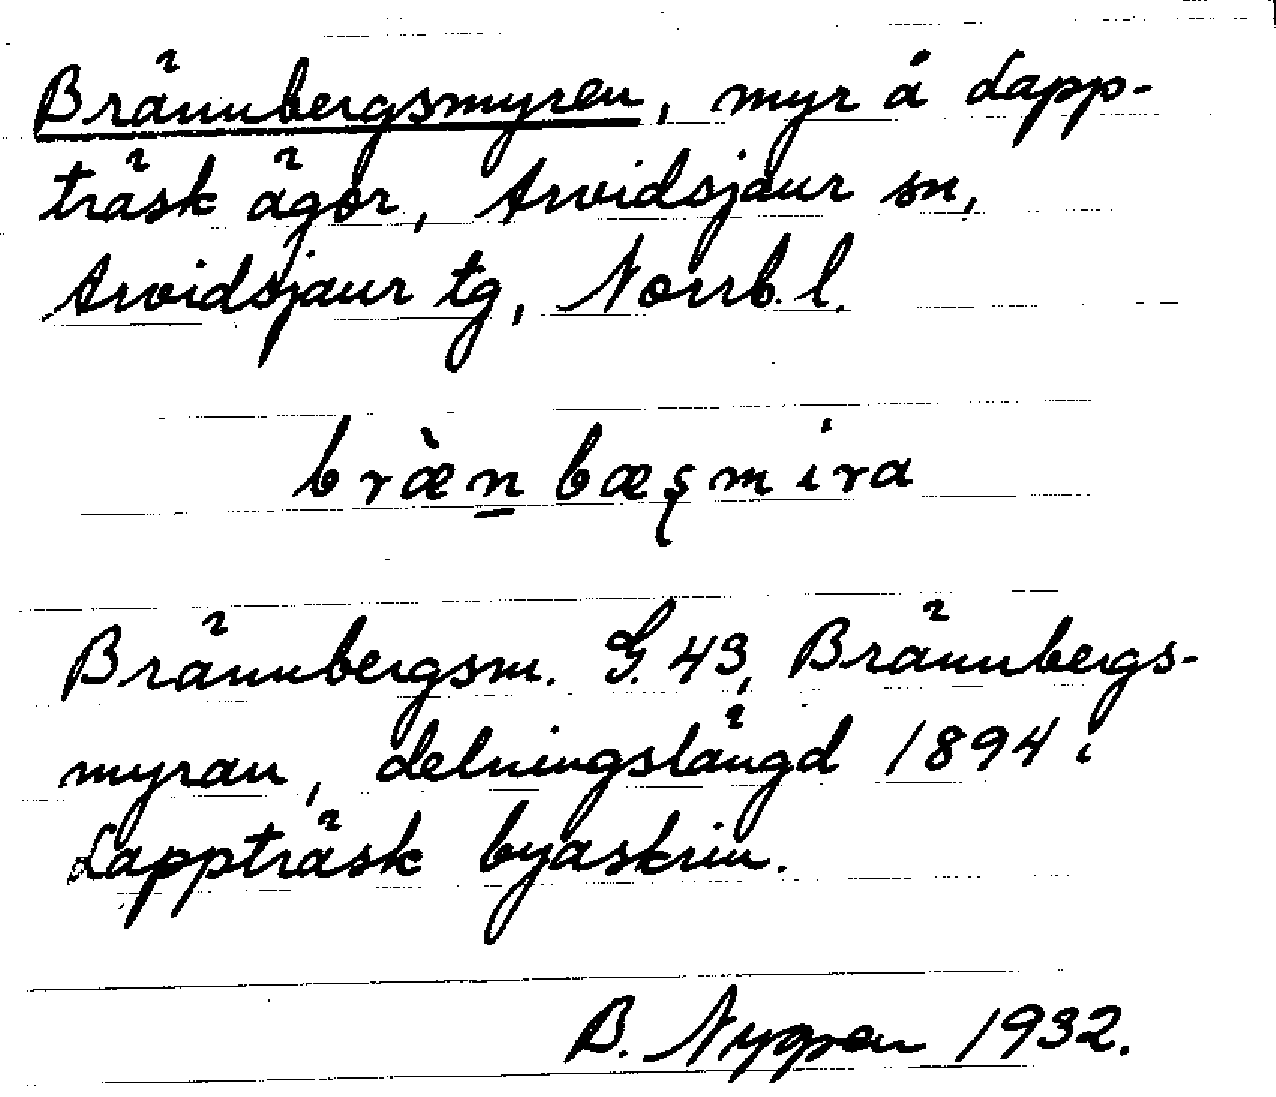 Brännbergsmyren, myr å Lapp-
träsk ägor, Arvidsjaur sn,
Arvidsjaur tg, Norrb. l.
bràen̲ bæşmira
Brännbergsm. G. 43, Brännbergs-
myran, delningslängd 1894 i
Lappträsk byaskrin.
B. Nygren 1932.